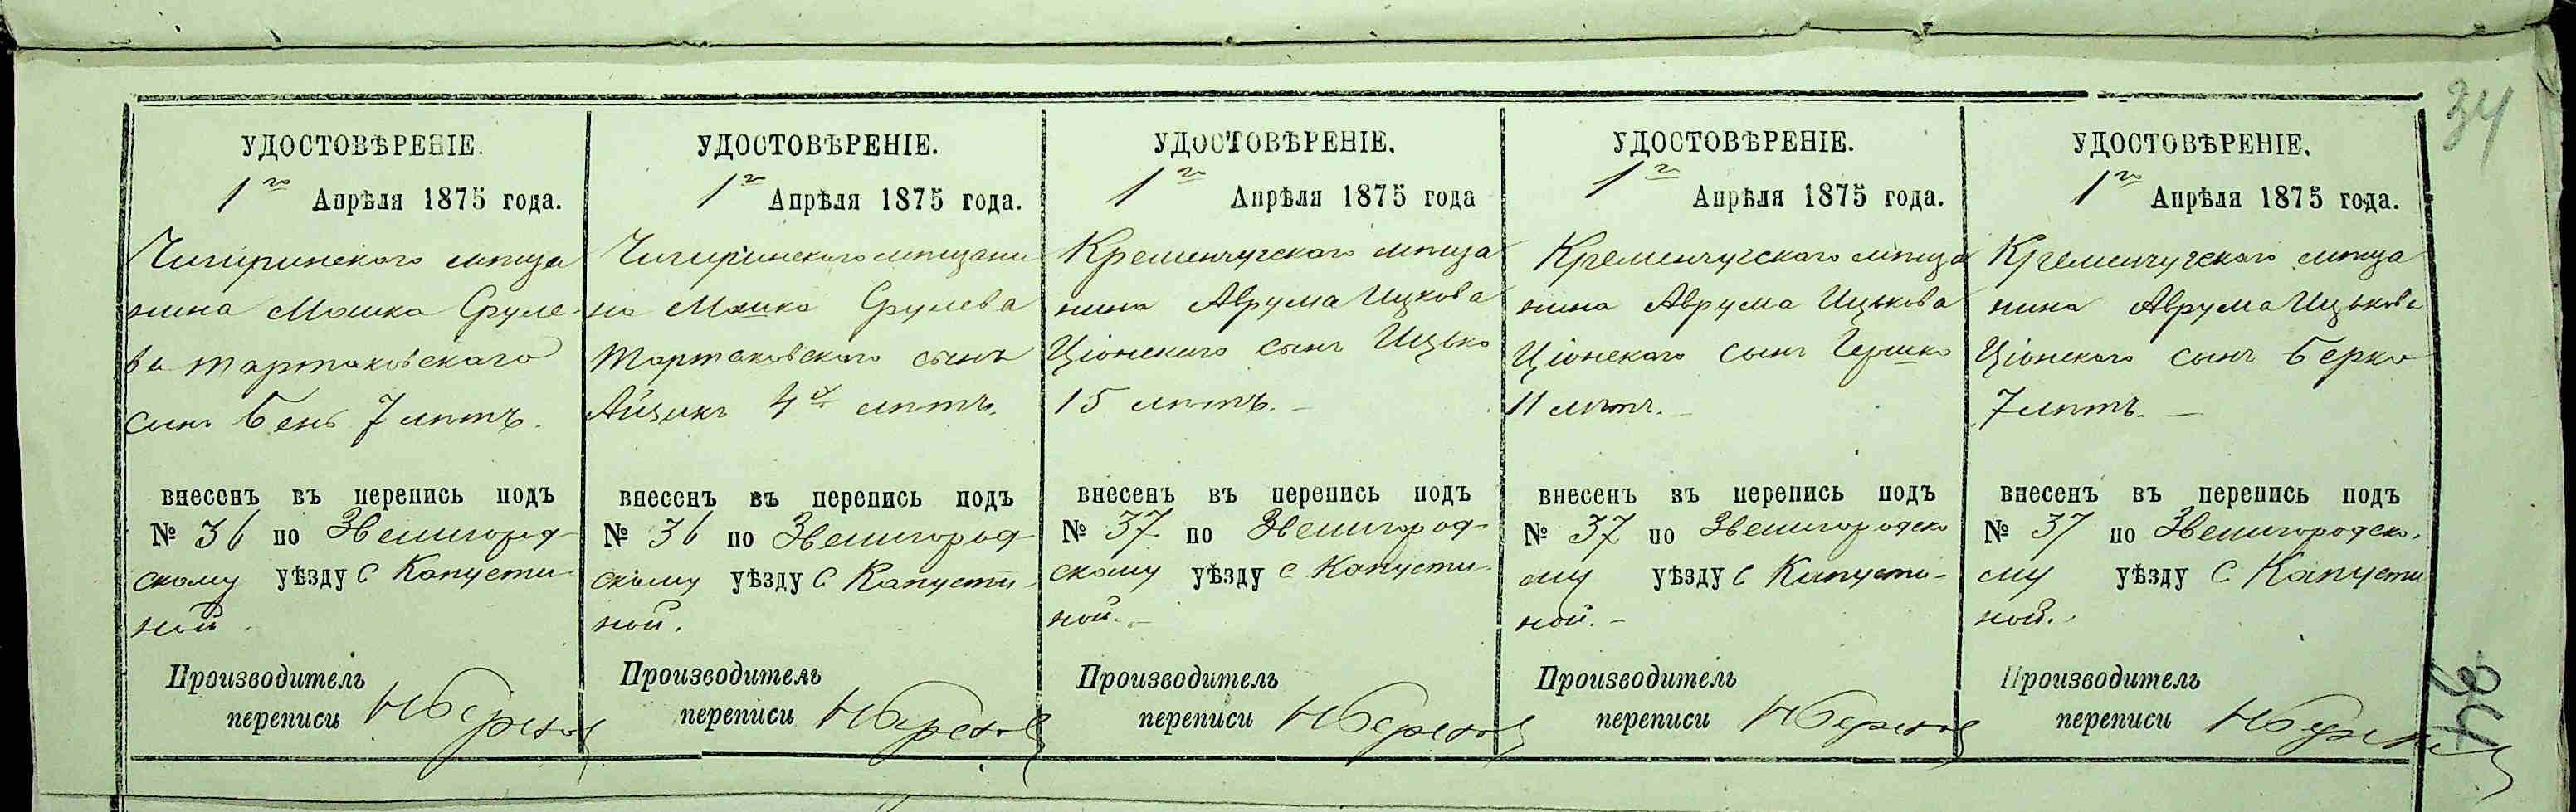 34
УДОСТОВѢРЕНІЕ.
1го Апрѣля 1875 года.
Чигиринского мѣща
нина Мошка Сруле-
ва Тартаковскаго
сынъ Бень 7 лѣтъ.
внесенъ въ перепись подъ
№ 36 по Звенигород-
скому уѣзду С Капусти-
ной
Производитель
переписи
УДОСТОВѢРЕНІЕ.
1го Апрѣля 1875 года.
Чигиринского мѣщани
на Мошка Срулева
Тартаковского сынъ
Айзикъ 4х лѣтъ.
внесенъ въ перепись подъ
№ 36 по Звенигород-
скому уѣзду С Капусти-
ной.
Производитель
переписи
УДОСТОВѢРЕНІЕ.
1го Апрѣля 1875 года
Кременчугского мѣща
нина Аврума Ицкова
Ціонского сынъ Ицько
15 лѣтъ. –
внесенъ въ перепись подъ
№ 37 по Звенигород-
скому уѣзду с Капусти-
ной. –
Производитель
переписи
УДОСТОВѢРЕНІЕ.
1го Апрѣля 1875 года.
Кременчугского мѣща
нина Аврума Ицькова
Ціонского сынъ Гершко
11 лѣтъ. –
внесенъ въ перепись подъ
№ 37 по Звенигородско
му уѣзду С Капусти-
ной. –
Производитель
переписи
УДОСТОВѢРЕНІЕ.
1го Апрѣля 1875 года.
Кременчугского мѣща
нина Аврума Ицькова
Ціонского сынъ Берко
7 лѣтъ. –
внесенъ въ перепись подъ
№ 37 по Звенигородско-
му уѣзду С Капусти
ной.
Производитель
переписи
34